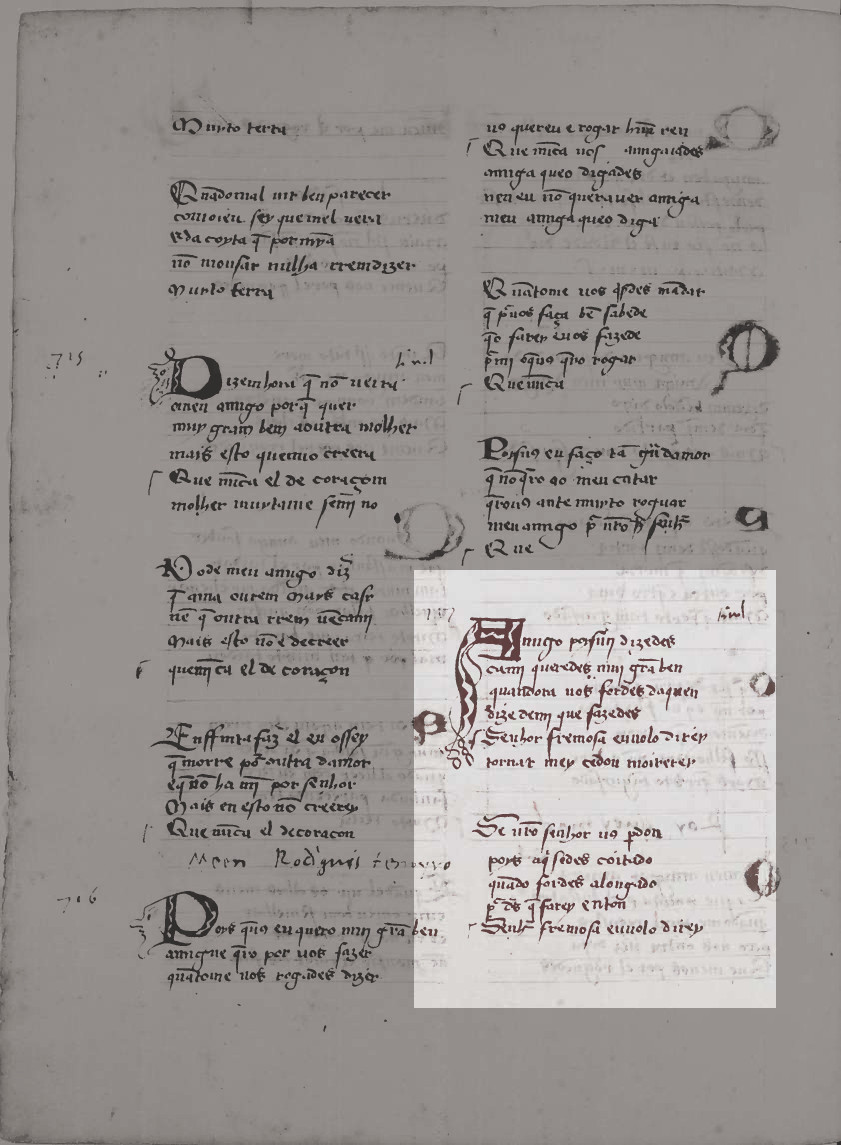 Muyto terra
Quadomal mr ben parecer
comoieu sey que mel uera
eda coyta q̄ por mȳa
nō mousar nulha rrem dizer
Muyto terra
715
Dizem hora q̄ nō uerra
omeu amigo porq̄ quer
muy gram bem a outra molher
mais esto quemio creera
Que nūca el de coraçom
molher muytame senō no
Pode meu amigo diz̄
q̄ ama outrem mays casy
nē q̄ outra rrem uē cami
Mais esto nō e de creer
que nūca el de coraçon
Enffinta faz̄ el eu o ssey
q̄ morre p̄ outra damor
e q̄ nō ha mī por senhor
Mais en esto nō creerey
Que nūca el decoracon
Meen Rodriguis tenoyro
716
Poys q̄u9 eu quero mui grā ben
amigue q̄ro por uos fazer
quātome uos rogades dizer
uo quereu e rogar hūa ren
Que nūca uos amiga iades
amiga queo digades
nen eu nō quera uer amiga
meu amiga queo diga
Quātome uos q̄sdes mādar
q̄ p̄ uos faça bē sabede
q̄o farey e uos fazede
p̄ mi o q̄u9 q̄ro rogar
Que nūca
Poisu9 eu faço tā grā damor
q̄ nō q̄ro ao meu catar
q̄rou9 ante muyto roguar
meu amigo p̄ nr̄o senhr̄
Que
717
Amigo poisuū dizedes
cami queredes mui grā ben
quandora uos fordes daquen
dizedemi que fazedes
Senhor fremosa eu uolo direy
tornar mey cedou moirerey
Se nr̄o senhor u9 p̄don
poys aq̄ sedes coitado
quādo fordes alongado
p̄ d̄s q̄ farey enton
Senhr̄ fremosa eu uolo direy